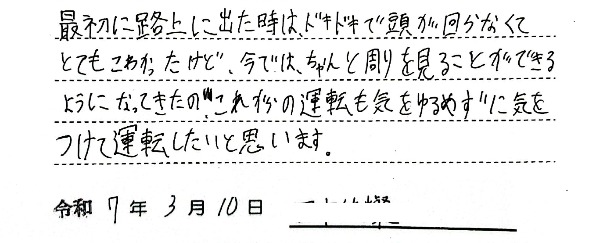 最初に路上に出た時は、ドキドキで頭が回らなくて
とてもこわかったけど、今では、ちゃんと周りを見ることができる
ようになってきたので、これからの運転も気をゆるめずに気を
つけて運転したいと思います。
令和 7 年 3 月 10 日